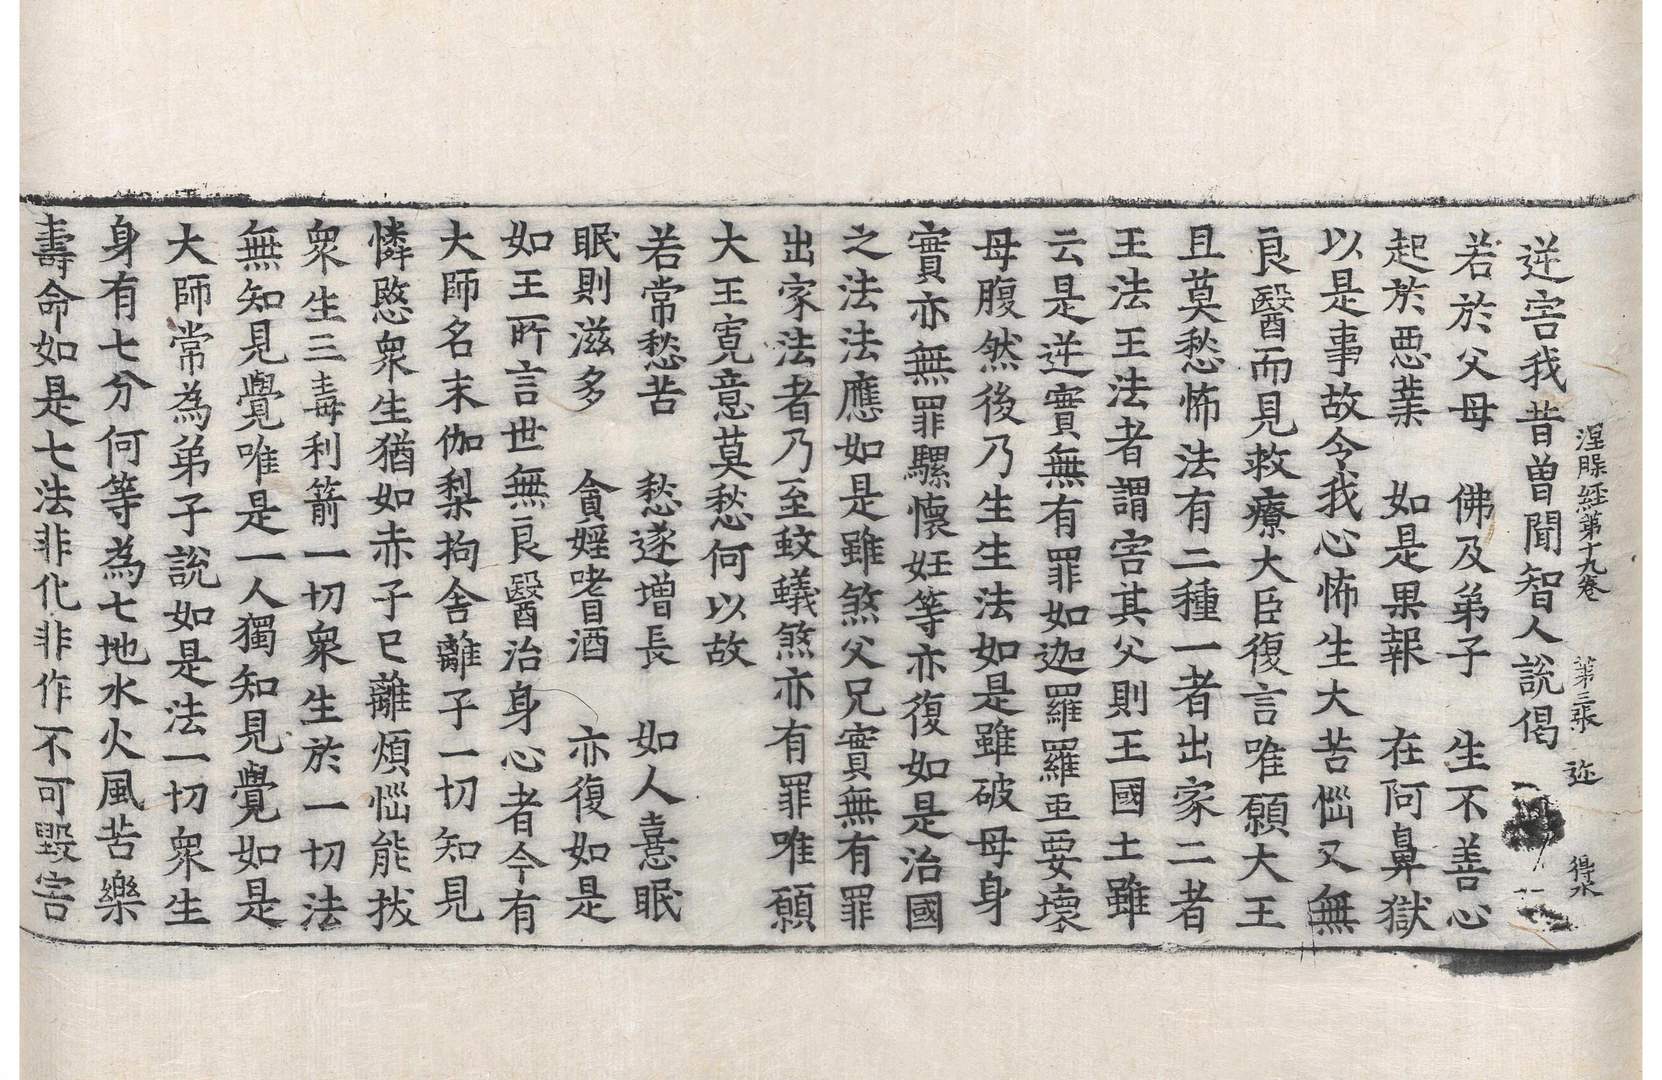 涅槃經第十九卷 第三張 迩 得水
逆害我昔曽聞智人說偈
若於父母 佛及弟子 生不善心
起於惡業 如是果報 在阿鼻獄
以是事故令我心怖生大苦惱又無
良醫而見救療大臣復言唯願大王
且莫愁怖法有二種一者出家二者
王法王法者謂害其父則王國土雖
云是逆實無有罪如迦羅羅虫要壞
母腹然後乃生生法如是雖破母身
實亦無罪騾懷妊等亦復如是治國
之法法應如是雖煞父兄實無有罪
出家法者乃至蚊蟻煞亦有罪唯願
大王寬意莫愁何以故
若常愁苦 愁遂增長 如人憙眠
眠則滋多 貪婬嗜酒 亦復如是
如王所言世無良醫治身心者今有
大師名末伽梨拘舍離子一切知見
憐愍衆生猶如赤子已離煩惱能拔
衆生三毒利箭一切衆生於一切法
無知見覺唯是一人獨知見覺如是
大師常為弟子說如是法一切衆生
身有七分何等為七地水火風苦樂
壽命如是七法非化非作不可毀害